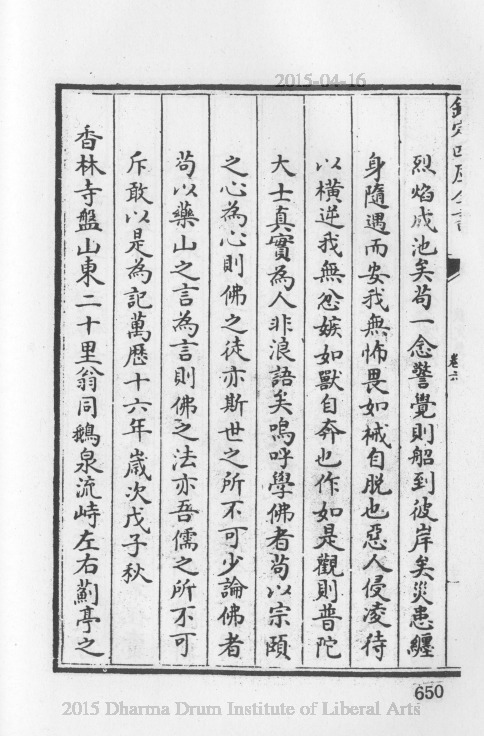 2015-04-16
欽定四庫全書
卷六
烈焰成池矣苟一念警覺則船到彼岸矣災患纏
身隨遇而安我無怖畏如械自脫也惡人侵凌待
以橫逆我無怨嫉如獸自奔也作如是觀則普陀
大士真實為人非浪語矣嗚呼學佛者苟以宗頤
之心為心則佛之徒亦斯世之所不可少論佛者
苟以藥山之言為言則佛之法亦吾儒之所不可
斥敢以是為記萬歷十六年歲次戊子秋
香林寺盤山東二十里翁同鵝泉流峙左右薊亭之
650
2015 Dharma Drum Institute of Liberal Arts